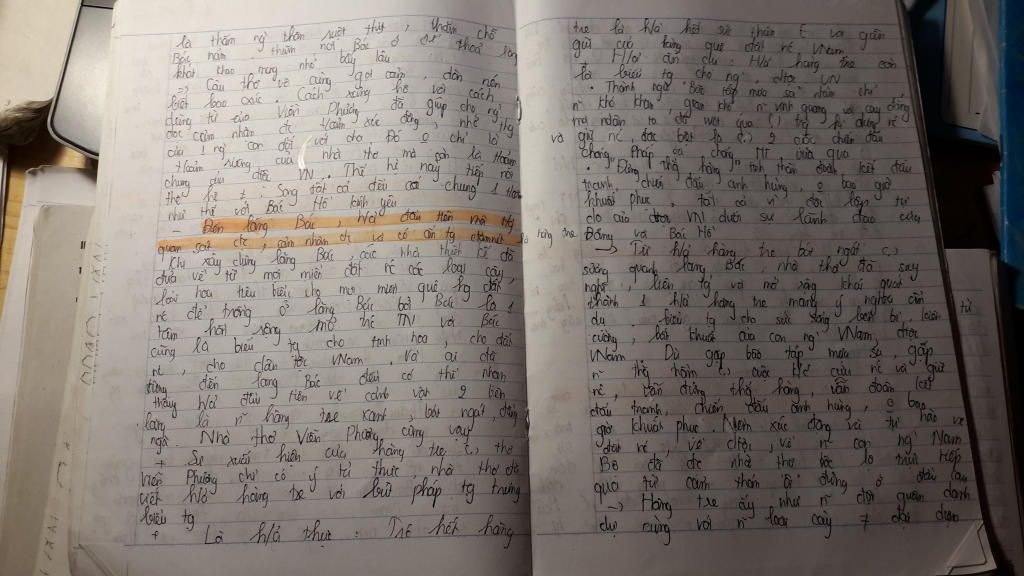 là thăm ng` thân ruột thịt, thăm chỗ
Bác nằm, thăm nơi Bác ở để thoả lòng
khát khao mong nhớ bấy lâu
=> Câu thơ vô cùng gợi cảm, dồn nén
biết bao xúc. Cách xưng hô với cách
dùng từ của Viễn Phương đã giúp cho ng`
đọc cảm nhận đc t/cảm xúc động, nhớ thg
của 1 ng` con đối với cha. Đó o chỉ là
t/cảm riêng của nhà thơ mà còn là t/cảm
chung của dân VN. Thế hệ này tiếp nối
thế hệ # song tất cả đều có chung 1 t/cảm
như thế với Bác Hồ kính yêu
- Đến lăng Bác, h/ả đầu tiên mà tg
quan sát đc, cảm nhận đc và có ấn tg đậm nét là hàng tre
Khi xây dựng lăng Bác, các nhà thiết kế đã
đưa về từ mọi miền đất nc các loại cây,
loài hoa tiêu biểu cho mọi miền quê hg đất
nc để trồng ở lăng Bác bởi Bác là 1
tâm hồn sống mở vs TN với Bác
cũng là biểu tg cho tinh hoa, cho đất
nc, cho dân tộc VNam. Và ai đã
từng đến lăng Bác đều có thể nhận
thấy h/ả đầu tiên về cảnh vật 2 bên
lăng là n~ hàng tre xanh, bát ngát đứng
ngã. Nhà thơ Viễn Phương cũng vậy
+ Sự xuất hiện của hàng tre (.) thơ
Viễn Phương chỉ có ý tả thực nhà thơ đã
viết h/ả hàng tre với bút pháp tg trưng
biểu tg
+ Là h/ả thực: Trc hết hàng
tre là h/ả hết sức thân t và gần
gũi của làng quê đất nc VNam
+ H/ả ẩn dụ: H/ả hàng tre còn
là biểu tg cho ng`, dtộc VN
. Thành ngữ "Bão táp mưa sa" nhằm chỉ
n~ khó khăn gian khổ n~ vinh quang và cay đắng
mà nhân ta đã vượt qua (.) tg kì dựng nc
và giữ nc đặc biệt là (.) 2 cuộc chiến
chống Pháp và chống Mĩ vừa qua
. Đứng thẳng hàng: tinh thần đoàn kết đấu
tranh, chiến đấu anh hùng, o bao giờ
khuất phục, tất cả vì độc lập tự
do của dtộc VN dưới sự lãnh đạo của
Đảng và Bác Hồ
-> Từ h/ả hàng tre bát ngát (.)
sương quanh lăng Bác, nhà thơ đã suy
nghĩ, liên tg và mở rộng khái quát
thành 1 h/ả hàng tre mang ý nghĩa ẩn
dụ, biểu tg cho sức sống bền bỉ kiên
cường, bất khuất của con ng` VNam, dtộc
VNam. Dù gặp bão táp mưa sa, gặp
n~ thg trầm (.) cuộc t của nc và giữ
nc, vẫn đứng thẳng hàng, vẫn đoàn kết
đấu tranh, chiến đấu anh hùng, o bao
giờ khuất phục. Niềm xúc động và tự hào về
đất nc, về dtộc, về n~ con ng` Nam
Bộ đã đc nhà thơ bộc lộ trực tiếp
qua từ cảm thán ôi đứng ở đầu câu
-> Hàng tre ấy như n~ đội quân danh
dự cùng với n~ loài cây # đại diện